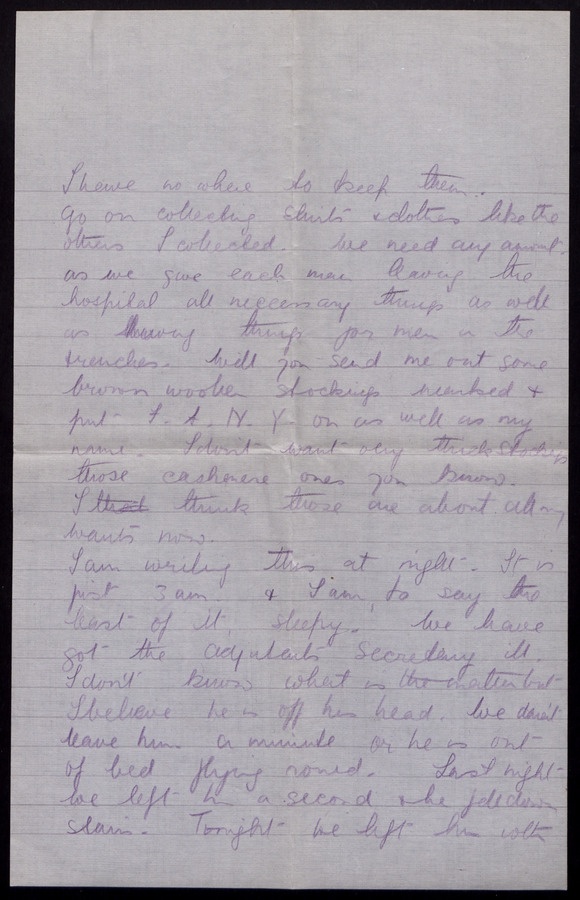 I have no where to keep them.
go on collecting shirts & clothes like the
others I collected. We need any amount.
as we give each man leaving the
hospital all neccessary things as well
as having things for men in the
trenches. Will you send me out some
brown woollen stockings marked &
put F. A. N. Y. on as well as my
name. I don't want very thick stockings
those cashemere ones you know.
I think those are about all my
wants now.
I am writing this at night. It is
just 3 am. & I am, to say the
least of it, sleepy. We have
got the adjutant's secretary ill.
I don't know what is the matter but
I believe he is off his head. We daren't
leave him a minute or he is out
of bed flying round. Last night
we left him a second & he fell down
stairs. Tonight we left him with